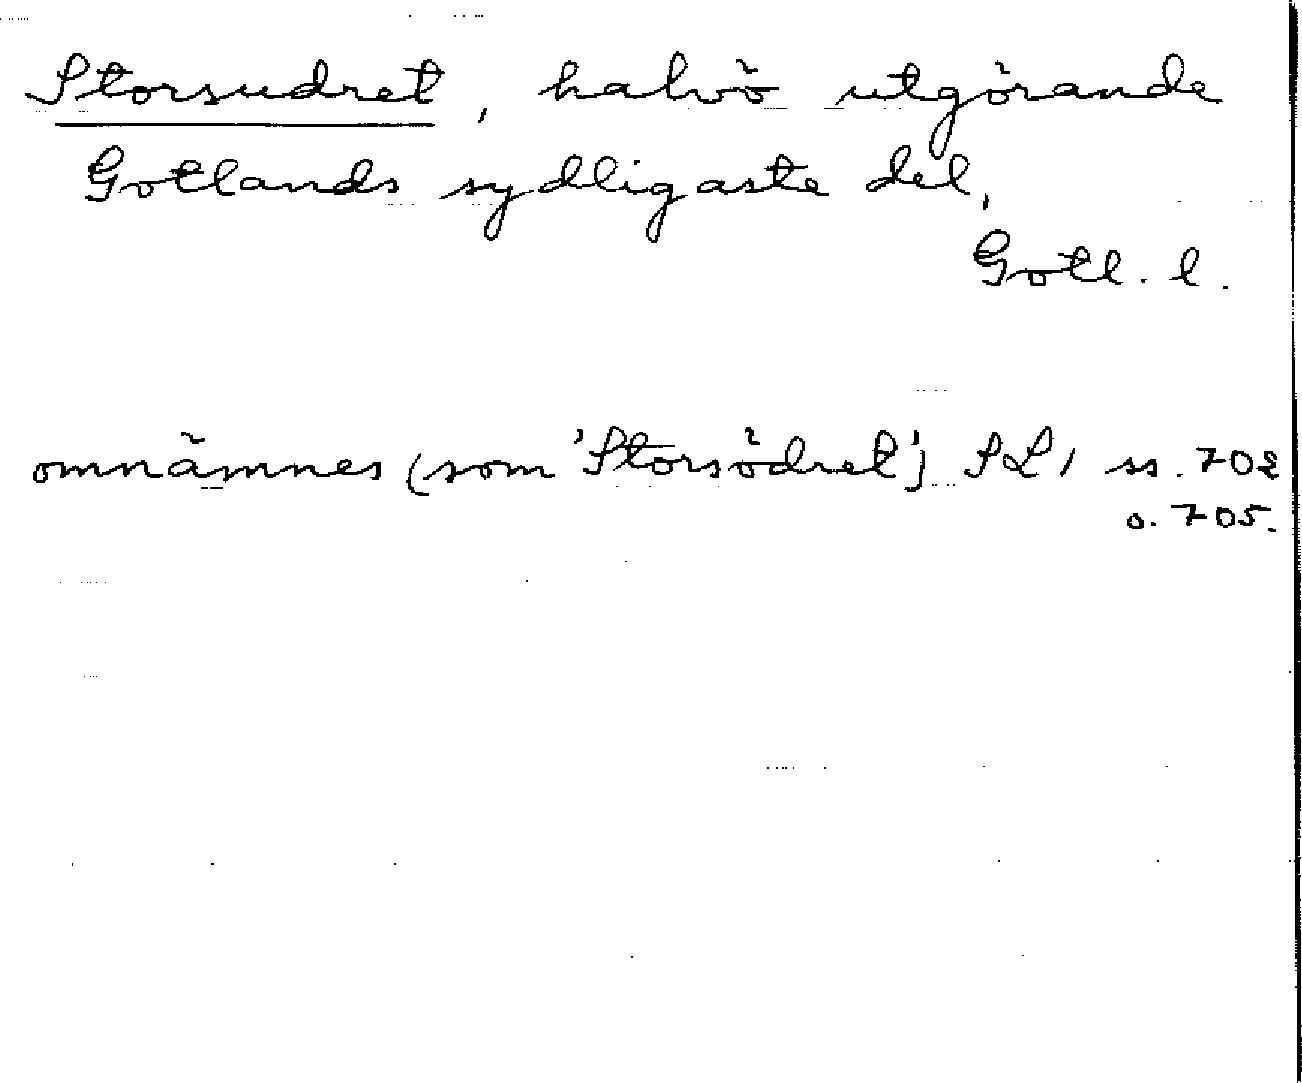 Storsudret, halvö utgörande
Gotlands sydligaste del,
Gotl. l.
omnämnes (som 'Storsödret') SL 1 ss. 702
o. 705.